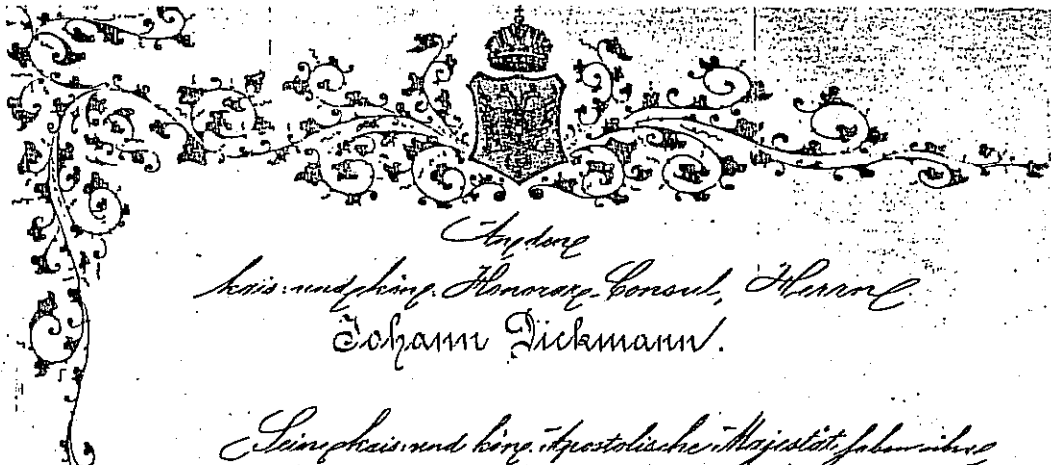 An den
kais: und kön: Honorar-Consul, Herrn
Johann Dickmann.
Seine kais: und kön: Apostolische Majestät haben über